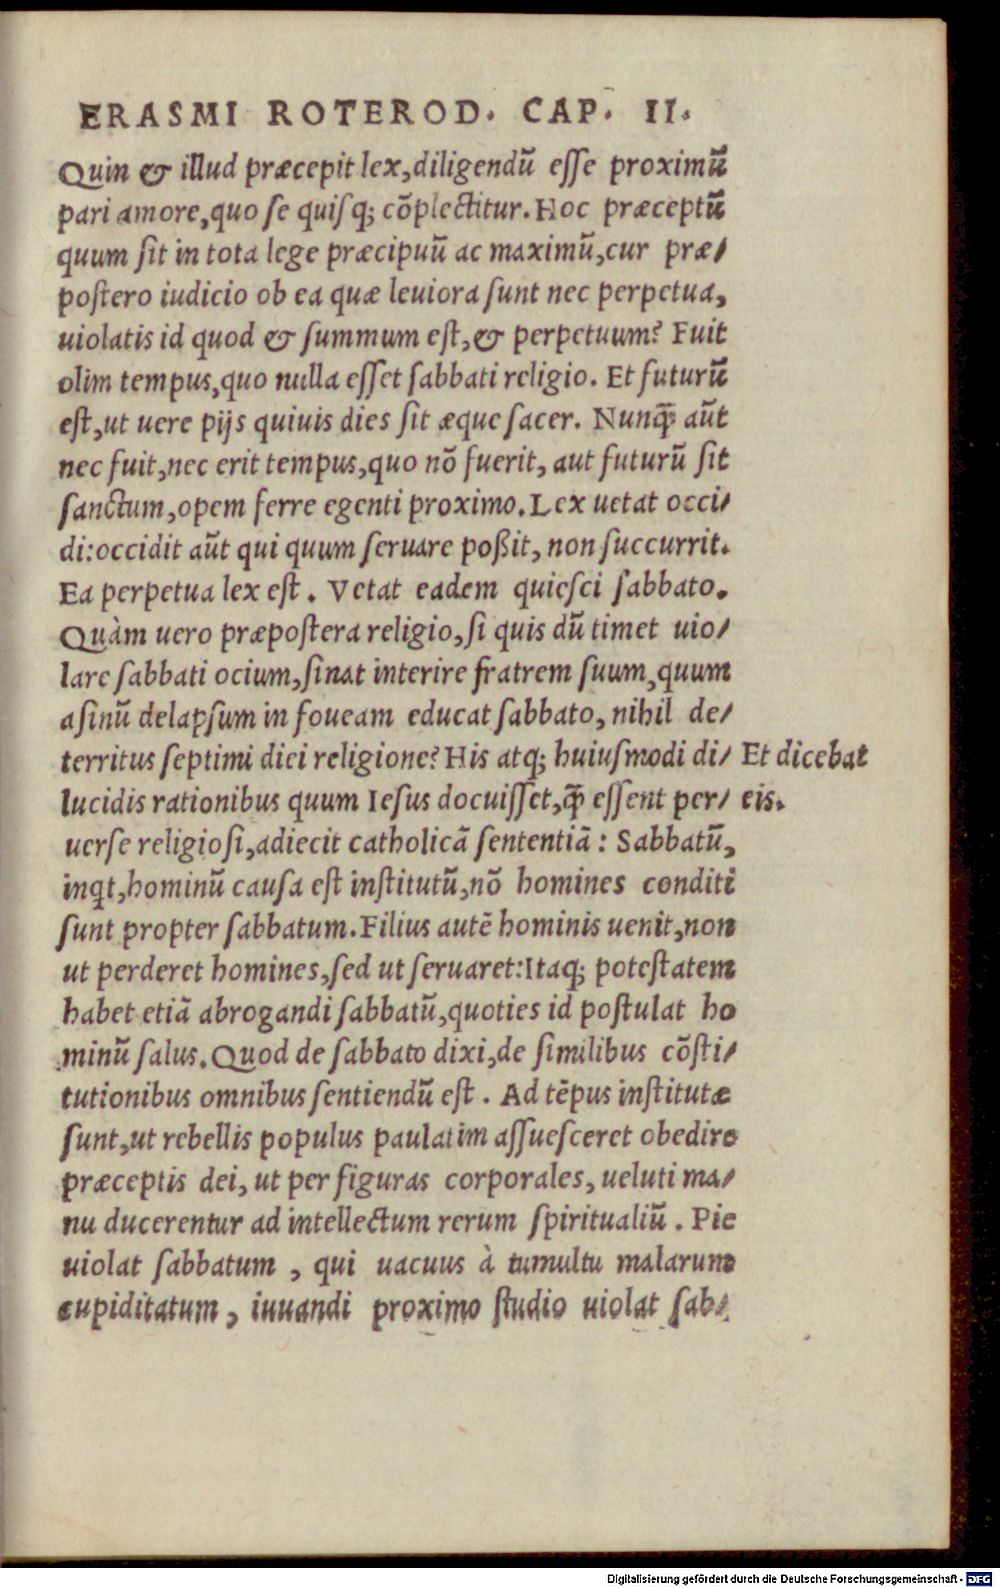 ERASMI ROTEROD. CAP. II.
Quin & illud præcepit lex, diligendũ esse proximũ
pari amore, quo se quisq; cõplectitur. Hoc præceptũ
quum sit in tota lege præcipuũ ac maximũ, cur præ/
postero iudicio ob ea quæ leuiora sunt nec perpetua,
uiolatis id quod & summum est, & perpetuum? Fuit
olim tempus, quo nulla esset sabbati religio. Et futurũ
est, ut uere pijs quiuis dies sit æque sacer. Nunq̃ aũt
nec fuit, nec erit tempus, quo nõ fuerit, aut futurũ sit
sanctum, opem ferre egenti proximo. Lex uetat occi/
di: occidit aũt qui quum seruare poßit, non succurrit.
Ea perpetua lex est. Vetat eadem quiesci sabbato.
Quàm uero præpostera religio, si quis dũ timet uio/
lare sabbati ocium, sinat interire fratrem suum, quum
asinũ delapsum in foueam educat sabbato, nihil de/
territus septimi diei religione? His atq; huiusmodi di/ Et dicebat
lucidis rationibus quum Iesus docuisset, q̃ essent per/ eis.
uerse religiosi, adiecit catholicã sententiã: Sabbatũ,
inqt, hominũ causa est institutũ, nõ homines conditi
sunt propter sabbatum. Filius autẽ hominis uenit, non
ut perderet homines, sed ut seruaret: Itaq; potestatem
habet etiã abrogandi sabbatũ, quoties id postulat ho
minũ salus. Quod de sabbato dixi, de similibus cõsti/
tutionibus omnibus sentiendũ est. Ad tẽpus institutæ
sunt, ut rebellis populus paulatim assuesceret obedire
præceptis dei, ut per figuras corporales, ueluti ma/
nu ducerentur ad intellectum rerum spiritualiũ. Pie
uiolat sabbatum, qui uacuus à tumultu malarum
cupiditatum, iuuandi proximo studio uiolat sab/
Digitalisierung gefördert durch die Deutsche Forschungsgemeinschaft - DFG